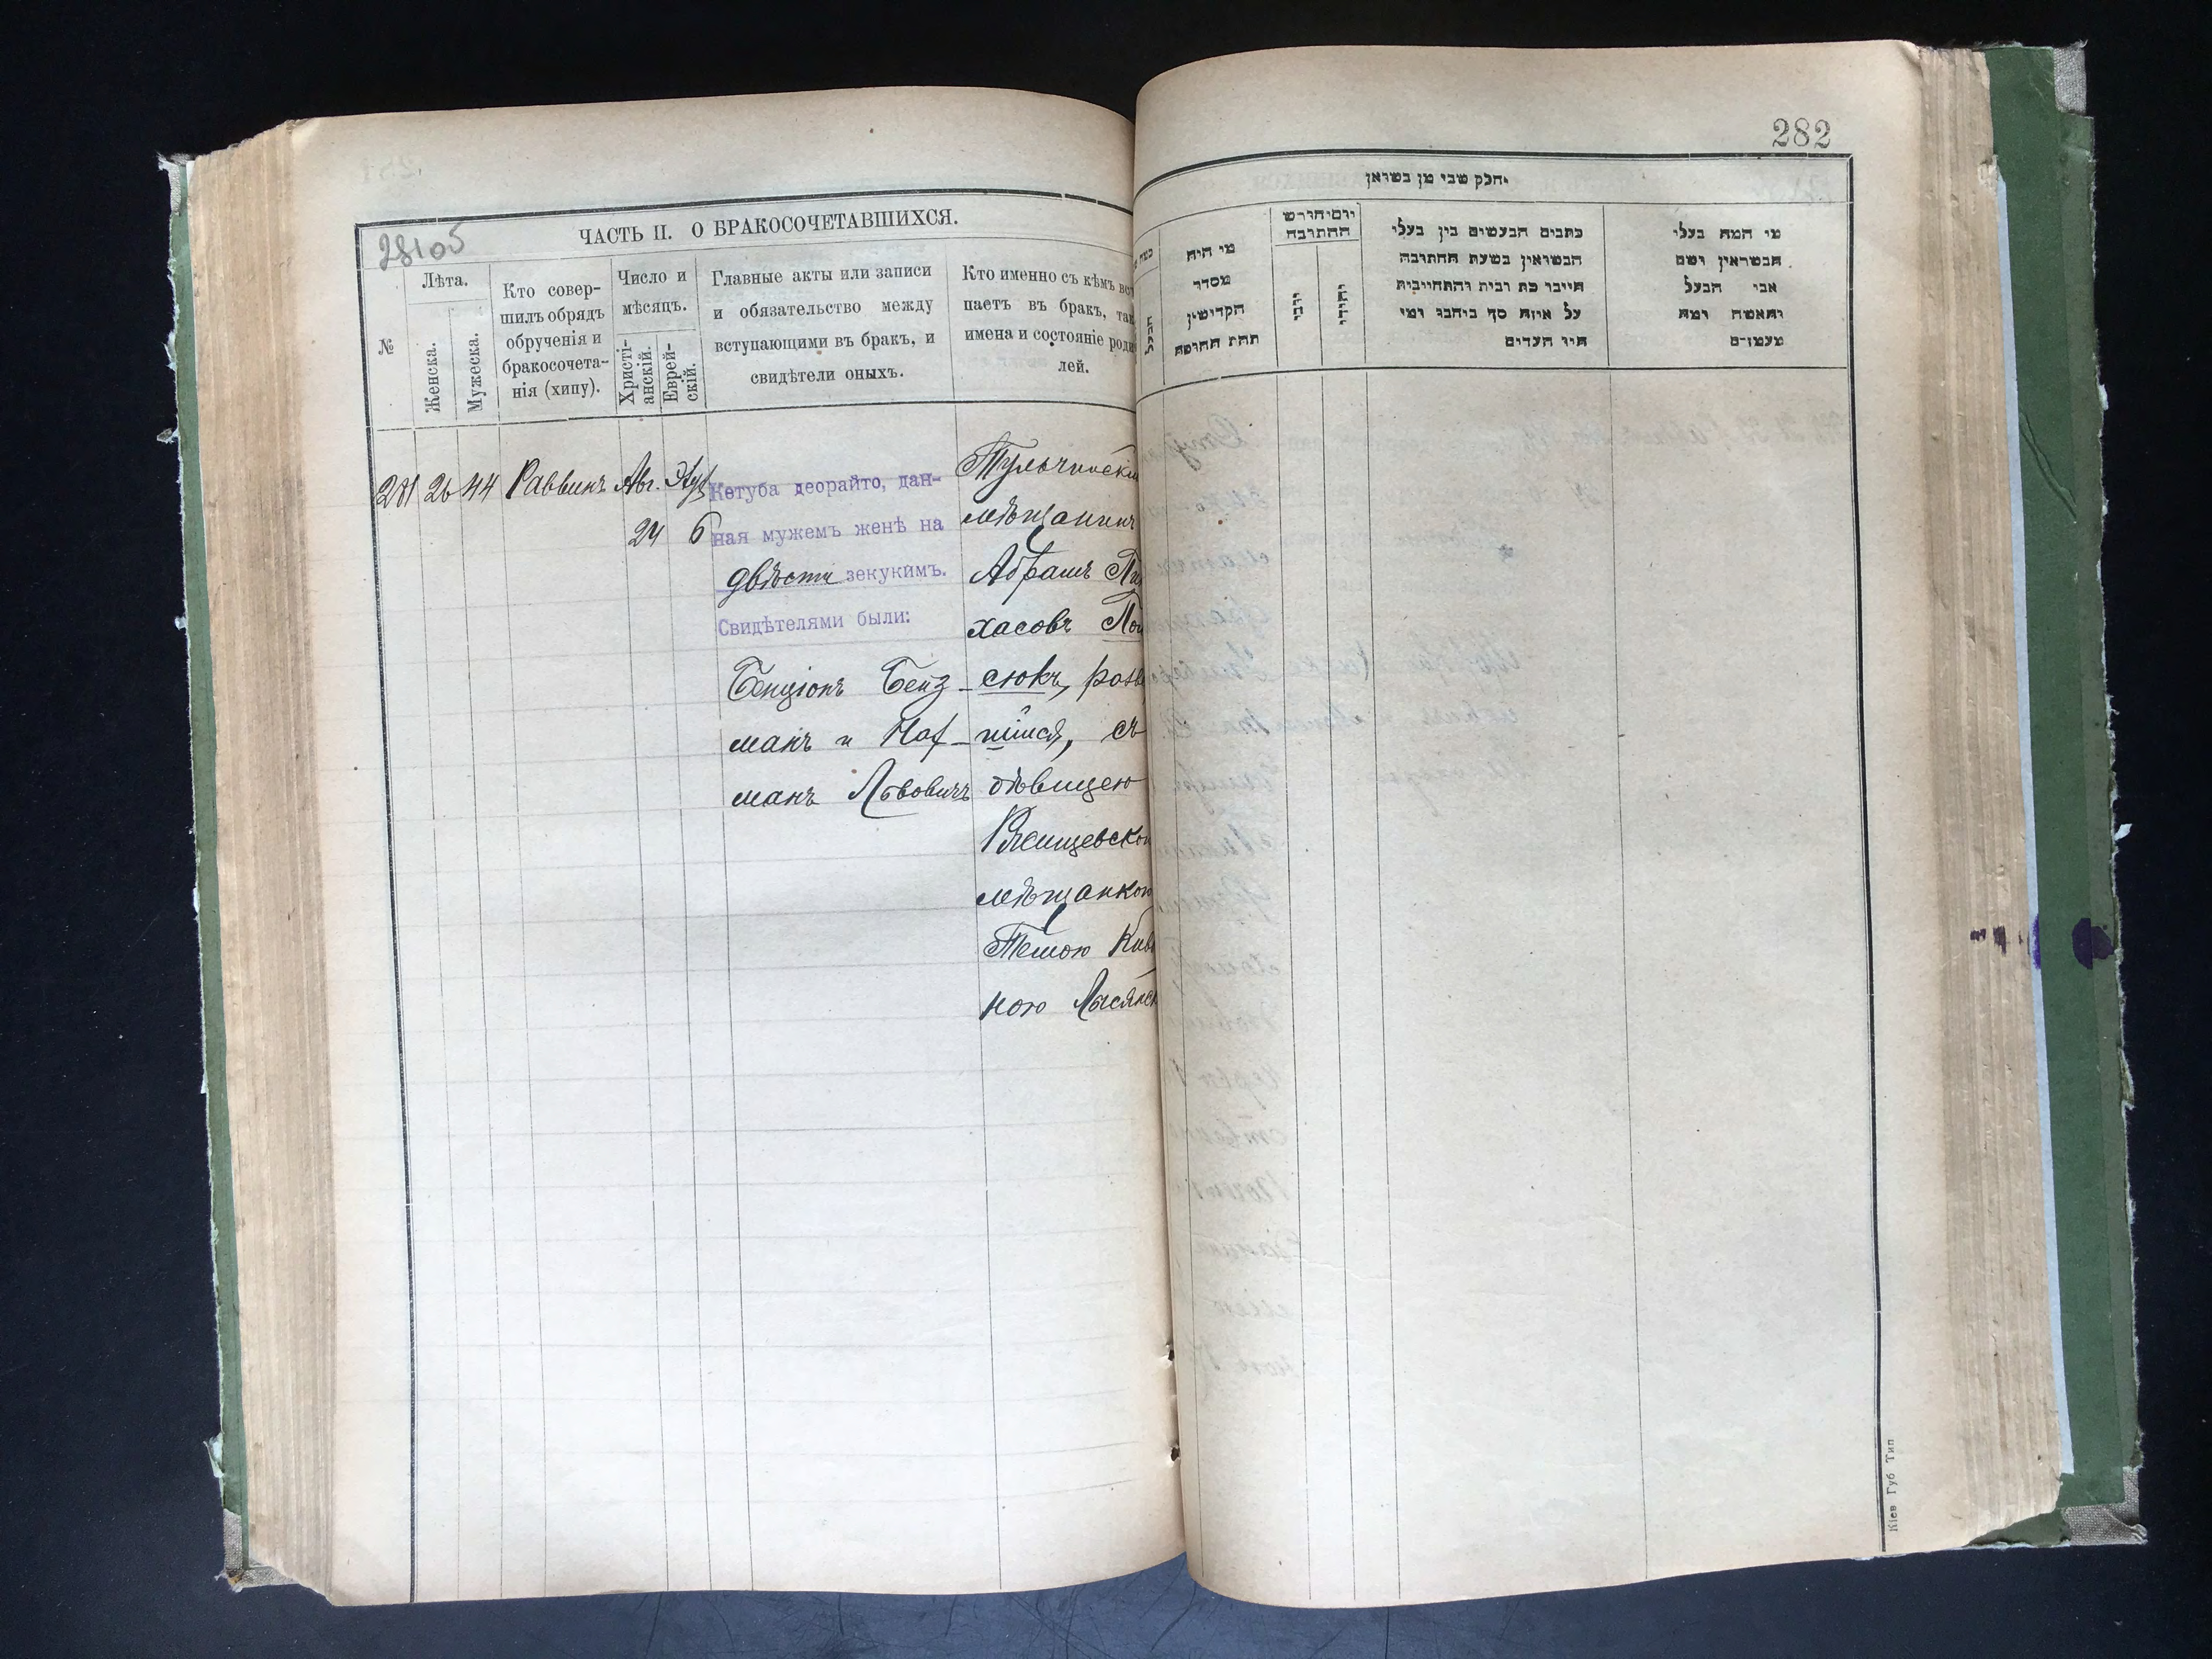 28105
ЧАСТЬ II. О БРАКОСОЧЕТАВШИХСЯ.
№
Лѣта.
Женска.
Мужеска.
Кто совер-
шилъ обрядъ
обрученія и
бракосочета-
нія (хипу).
Число и
мѣсяцъ.
Христі-
анскій.
Еврей-
скій.
Главные акты или записи
и обязательство между
вступающими въ бракъ, и
свидѣтели оныхъ.
Кто именно съ кѣмъ вст
паетъ въ бракъ, так
имена и состояніе роди
лей.
281 26 44 Раввинъ Авг.
24 6
Кетуба деорайто, дан-
ная мужемъ женѣ на
двѣсти зекукимъ.
Свидѣтелями были:
Бенціонъ Бейз
манъ и Наф
манъ Львовичъ
Тульчинскій
мѣщанинъ
Абрамъ Пин
хасовъ
сюкъ, разве
шійся, съ
дѣвицею
Ржищевской
мѣщанкою
Темою Кив
ною Лысянск
282
חלק שני מן נשואין
מי היה
מסדר
הקדושין
תחת החופה
יום וחודש
החתונה
יהודי
כתבים הנעשים בין בעלי
הנשואין בשעת החתונה
חייבו כת רבית והתחייבות
על איזה סך ביחבו ומי
היו העדים
מי המה בעלי
הנשואין ושם
אבי הבעל
והאשה ומה
מעמדם
הבעל
Кіев Губ Тип